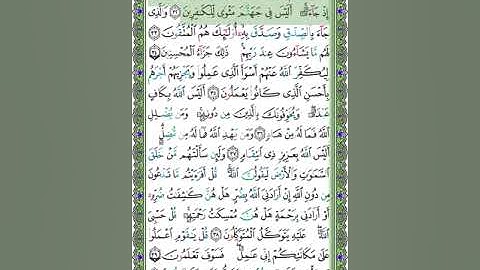 إِذْ جَآءَهُۥٓ أَلَيْسَ فِى جَهَنَّمَ مَثْوًى لِّلْكَٰفِرِينَ ٣٢ وَٱلَّذِى
جَآءَ بِٱلصِّدْقِ وَصَدَّقَ بِهِۦٓ أُو۟لَٰٓئِكَ هُمُ ٱلْمُتَّقُونَ ٣٣
لَهُم مَّا يَشَآءُونَ عِندَ رَبِّهِمْ ذَٰلِكَ جَزَآءُ ٱلْمُحْسِنِينَ ٣٤
لِيُكَفِّرَ ٱللَّهُ عَنْهُمْ أَسْوَأَ ٱلَّذِى عَمِلُوا۟ وَيَجْزِيَهُمْ أَجْرَهُم
بِأَحْسَنِ ٱلَّذِى كَانُوا۟ يَعْمَلُونَ ٣٥ أَلَيْسَ ٱللَّهُ بِكَافٍ
عَبْدَهُۥ وَيُخَوِّفُونَكَ بِٱلَّذِينَ مِن دُونِهِۦ وَمَن يُضْلِلِ
ٱللَّهُ فَمَا لَهُۥ مِنْ هَادٍ ٣٦ وَمَن يَهْدِ ٱللَّهُ فَمَا لَهُۥ مِن مُّضِلٍّ
أَلَيْسَ ٱللَّهُ بِعَزِيزٍ ذِى ٱنتِقَامٍ ٣٧ وَلَئِن سَأَلْتَهُم مَّنْ خَلَقَ
ٱلسَّمَٰوَٰتِ وَٱلْأَرْضَ لَيَقُولُنَّ ٱللَّهُ قُلْ أَفَرَءَيْتُم مَّا تَدْعُونَ
مِن دُونِ ٱللَّهِ إِنْ أَرَادَنِىَ ٱللَّهُ بِضُرٍّ هَلْ هُنَّ كَٰشِفَٰتُ ضُرِّهِۦٓ
أَوْ أَرَادَنِى بِرَحْمَةٍ هَلْ هُنَّ مُمْسِكَٰتُ رَحْمَتِهِۦ قُلْ حَسْبِىَ
ٱللَّهُ عَلَيْهِ يَتَوَكَّلُ ٱلْمُتَوَكِّلُونَ ٣٨ قُلْ يَٰقَوْمِ ٱعْمَلُوا۟
عَلَىٰ مَكَانَتِكُمْ إِنِّى عَٰمِلٌ فَسَوْفَ تَعْلَمُونَ ٣٩